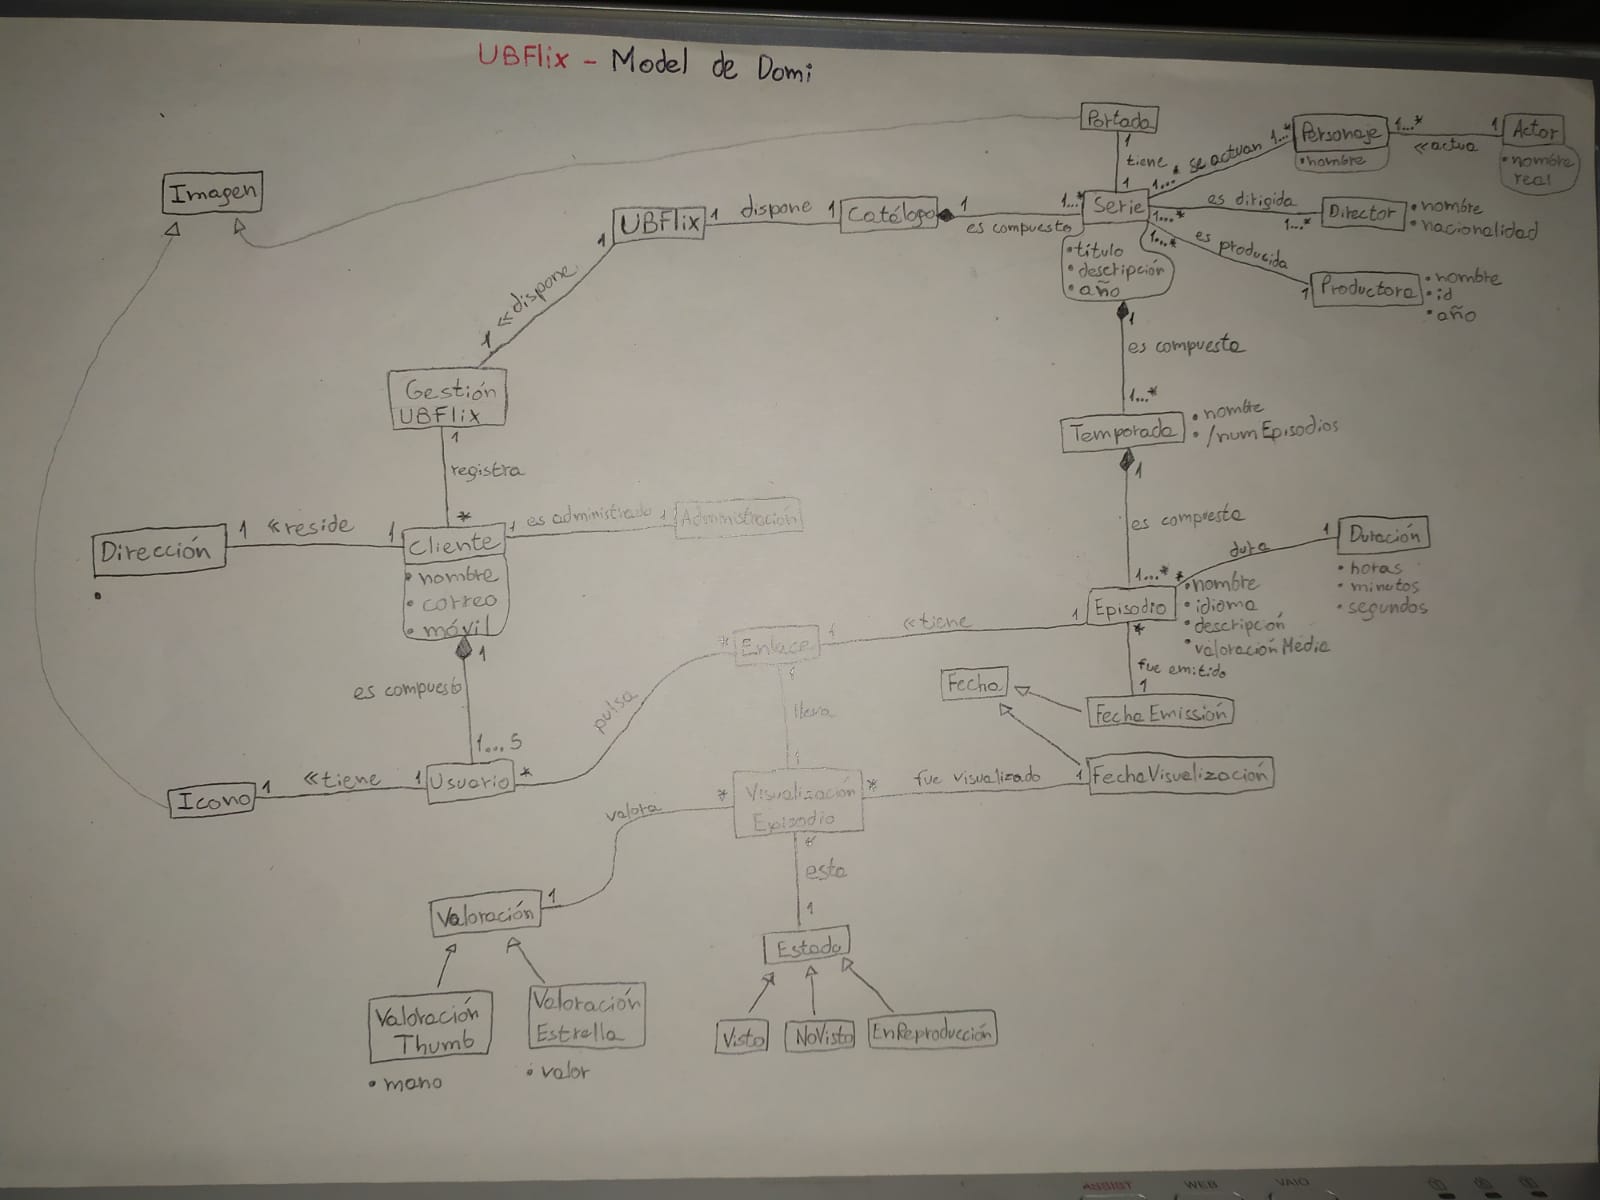 UBFlix - Model de Domi
Portada
1
tiene
1
se actuan
1...*
1...*
Personaje
• nombre
1...*
«actua
1
Actor
• nombre
real
Imagen
UBFlix
1
dispone
1
Catálogo
1
es compuesto
1...*
Serie
• título
• descripción
• año
es dirigida
1...*
1...*
Director
• nombre
• nacionalidad
1...*
es producida
1
Productora
• nombre
• id
• año
1
«dispone
1
Gestión
UBFlix
1
registra
*
1
es compuesta
1...*
Temporada
• nombre
• /numEpisodios
1
es compuesta
1...*
Dirección
•
1
«reside
1
Cliente
• nombre
• correo
• móvil
1
es administrado
1
Administración
*
dura
1
Duración
• horas
• minutos
• segundos
Episodio
• nombre
• idioma
• descripción
• valoración Media
1
«tiene
1
Enlace
*
pulsa
*
1
es compuesto
1...5
*
fue emitido
1
Fecha
FechaEmissión
lleva
Icono
1
«tiene
1
Usuario
Visualización
Episodio
*
fue visualizado
1
FechaVisualización
*
valora
1
Valoración
*
esta
1
Estado
Valoración
Thumb
• mano
Valoración
Estrella
• valor
Visto
NoVisto
EnReproducción
ASSIST
WEB
VAIO